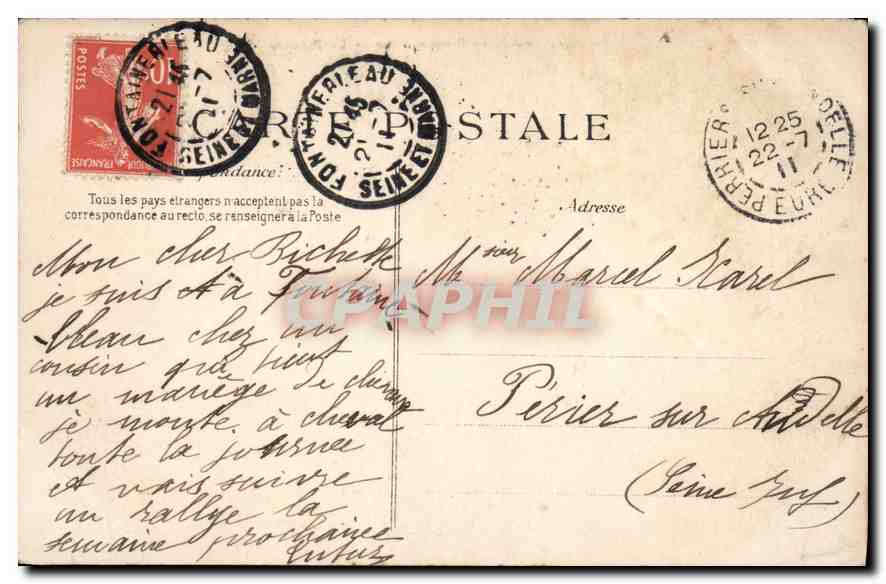 POSTES
10
FONTAINEBLEAU
21 45
SEINE ET MARNE
FONTAINEBLEAU
21 45
21 -7
11
SEINE ET MARNE
PERRIERS
DELLE
12 25
22 -7
11
EURE
CARTE POSTALE
FRANÇAISE
pondance:
Tous les pays étrangers n'acceptent pas la
correspondance au recto, se renseigner à la Poste
Adresse
Mon cher Bichette
je suis A à Fontaine
bleau chez un
cousin qui tient
un manège de chevaux
je monte à cheval
toute la journée
A vais suivre
un rallye la
semaine prochaine
Monsieur Marcel Karel
Périer sur Andelle
(Seine Inf)
CPAPHIL